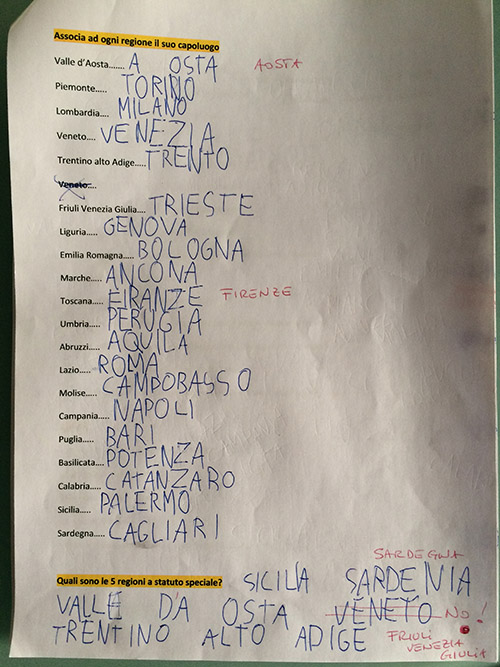 Associa ad ogni regione il suo capoluogo
Valle d'Aosta....... A OSTA AOSTA
Piemonte..... TORINO
Lombardia.... MILANO
Veneto.... VENEZIA
Trentino alto Adige..... TRENTO
Veneto.....
Friuli Venezia Giulia.... TRIESTE
Liguria..... GENOVA
Emilia Romagna..... BOLOGNA
Marche..... ANCONA
Toscana..... FIRANZE FIRENZE
Umbria..... PERUGIA
Abruzzi..... AQUILA
Lazio..... ROMA
Molise..... CAMPOBASSO
Campania..... NAPOLI
Puglia..... BARI
Basilicata.... POTENZA
Calabria..... CATANZARO
Sicilia..... PALERMO
Sardegna..... CAGLIARI
SARDEGNA
Quali sono le 5 regioni a statuto speciale? SICILIA SARDENIA
VALLE D'A OSTA VENETO NO!
TRENTINO ALTO ADIGE FRIULI
VENEZIA
GIULIA